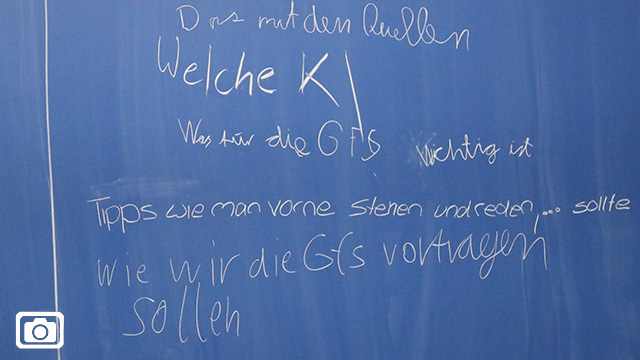 Das mit den Quellen
Welche KI
Was für die Gfs wichtig ist
Tipps wie man vorne stehen und reden,... sollte
wie wir die Gfs vortragen
sollen